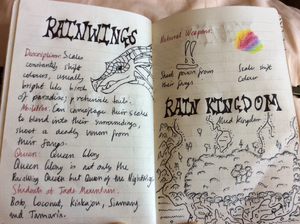 RAINWINGS
Description: Scales
constantly shift
colours, usually
bright like birds
of paradise; prehensile tails.
Abilities: Can camouflage their scales
to blend into their surroundings,
shoot a deadly venom from
their fangs.
Queen: Queen Glory
Queen Glory is not only the
RainWing Queen but Queen of the Nightwings
Students at Jade Mountain:
Boto, Coconut, Kinkajou, Siamang
and Tamarin.
Natural Weapons:
Shoot poison from
their fangs
Scales shift
Colour
RAIN KINGDOM
Kingdom